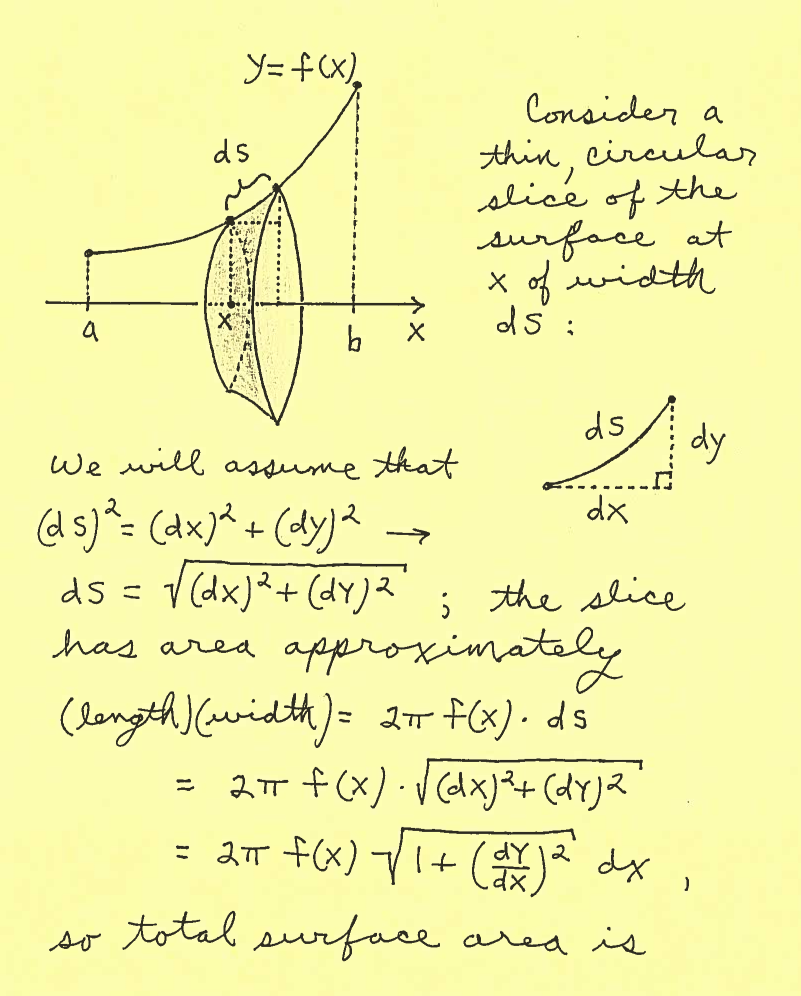 y = f(x)
ds
a
x
b
x
Consider a
thin, circular
slice of the
surface at
x of width
ds :
ds
dy
dx
We will assume that
(ds)² = (dx)² + (dy)² →
ds = √((dx)² + (dy)²) ; the slice
has area approximately
(length)(width) = 2π f(x) · ds
= 2π f(x) · √((dx)² + (dy)²)
= 2π f(x) √(1 + (dy/dx)²) dx ,
so total surface area is